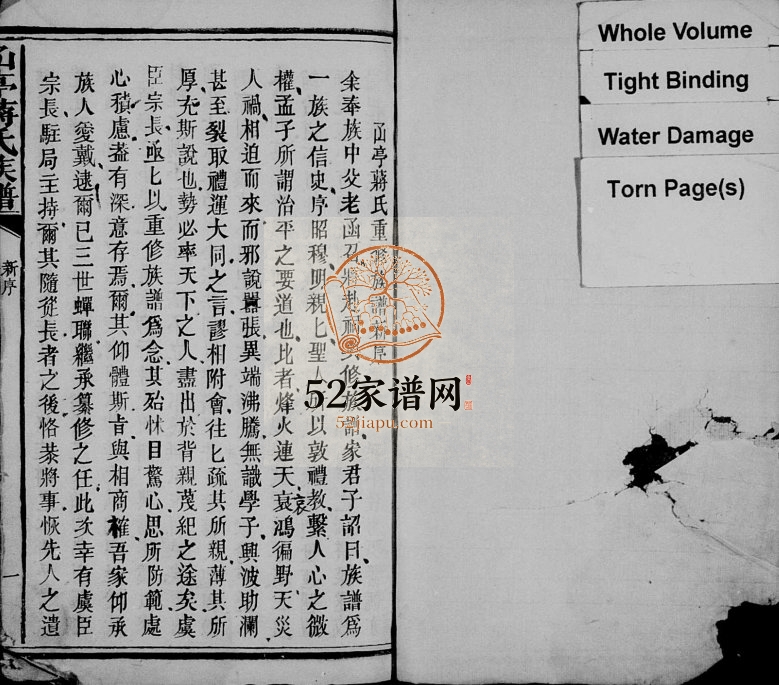 Whole Volume
Tight Binding
Water Damage
Torn Page(s)
亭蔣氏重修族譜新序
余奉族中父老函召將赴修族譜家君子詔曰族譜爲
一族之信史序昭穆明親匕聖人所以敦禮教繫人心之微
權孟子所謂治平之要道也比者烽火蓮天哀鴻徧野天災
哀
人禍相迫而來而邪說囂張異端沸騰無識學子興波助瀾
甚至裂取禮運大同之言謬相附會往匕疏其所親薄其所
厚充斯說也勢必率天下之人盡出於背親蔑紀之途矣虞
臣宗長亟匕以重修族譜爲念其殆怵目驚心思所防範處
心積慮葢有深意存焉爾其仰體斯旨與相商榷吾家仰承
族人愛戴逮爾已三世蟬聯繼承纂修之任此次幸有虞臣
宗長駐局主持爾其隨從長者之後恪恭將事恢先人之遺
亭蔣氏族譜
新序
一
52家谱网
52jiapu.com